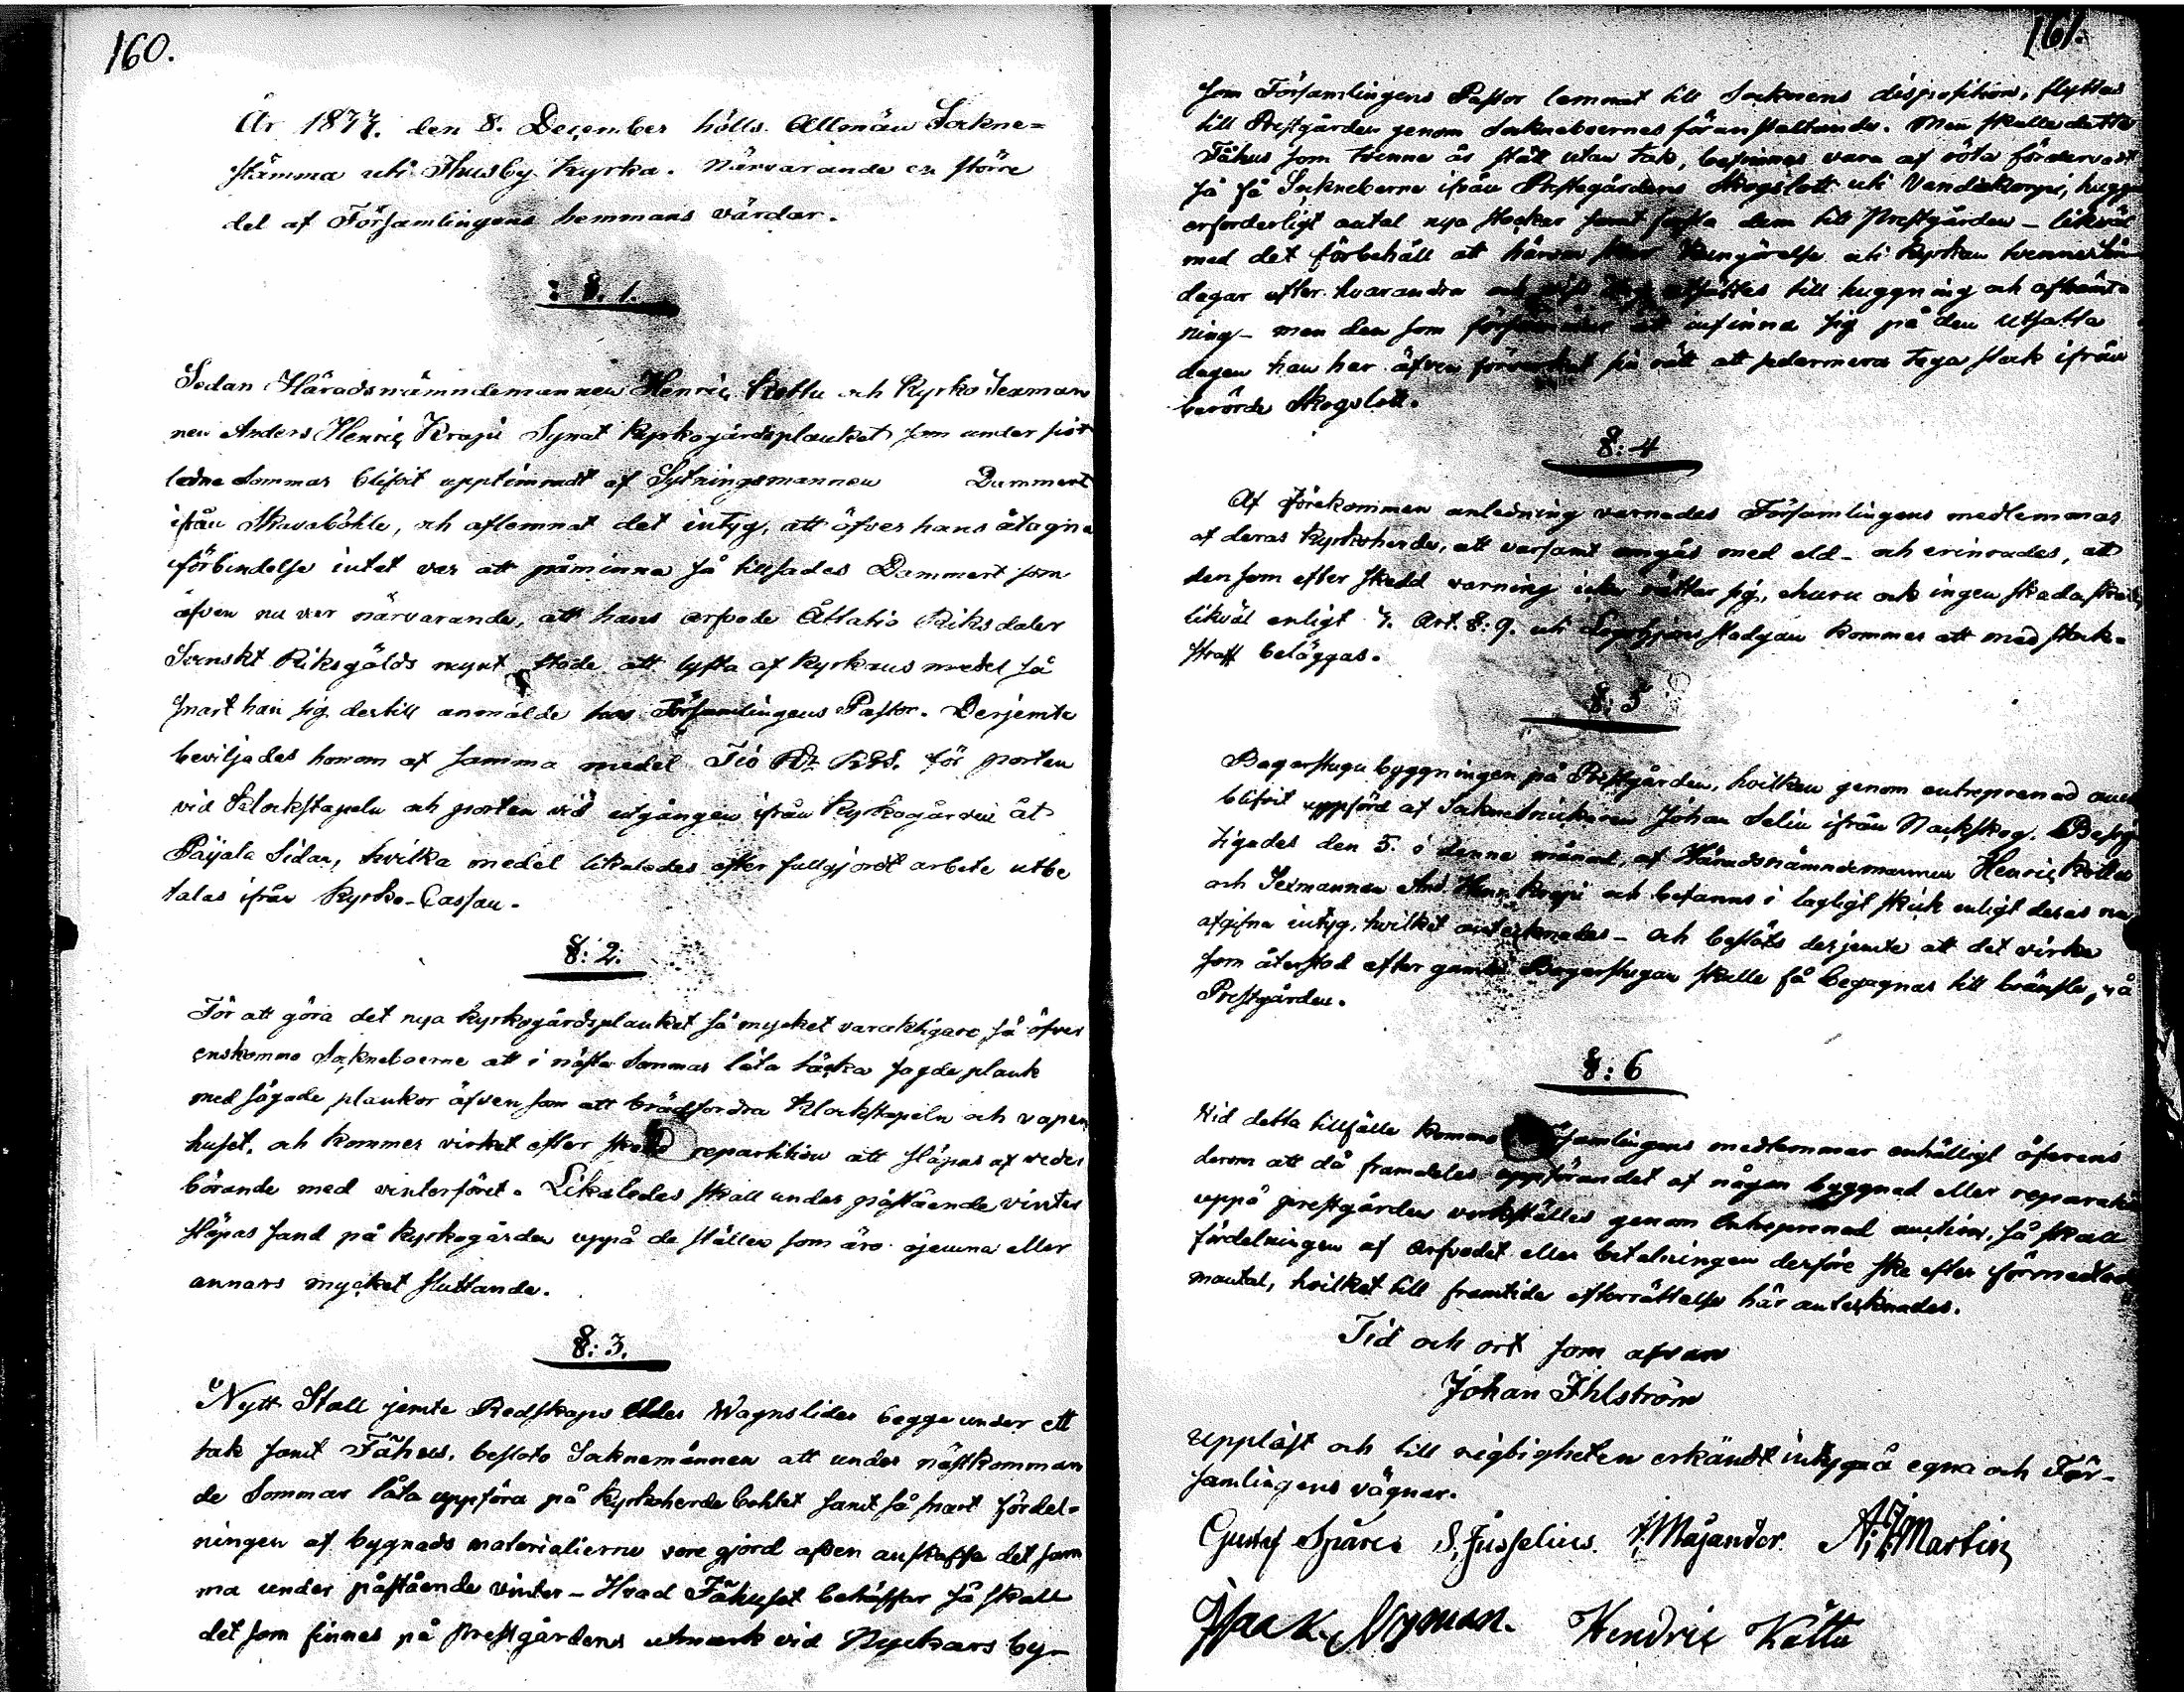 160.
År 1837. den 8. December hölls Allmän Sockne=
stämma uti Thusby Kyrka. Närvarande en större
del af Församlingens hemmans värdar.
§. 1.
Sedan Häradsnämndemannen Henric Kottu och Kyrko Sexman
nen Anders Henric Krapi Synat Kyrkogårdsplanket som under sist
ledne Sommar blifvit upptimradt af Sytningsmannen Dammert
ifrån Skavaböhle, och aflemnat det intyg, att öfver hans åtagne
förbindelse intet var att påminna så tillsades Dammert som
äfven nu var närvarande, att hans arfvode Åttatio Riksdaler
Svenskt Riksgälds mynt stode att lyfta af Kyrkans medel så
snart han sig dertill anmälde hos Församlingens Pastor. Derjemte
beviljades honom af samma medel Tio Rd. RGS. för porten
vid Klockstapeln och porten vid utgången ifrån Kyrkogården åt
Paijala Sidan, hvilka medel likaledes efter fullgjordt arbete utbe
talas ifrån Kyrko-Cassan.
§: 2.
För att göra det nya Kyrkogårdsplanket så mycket varaktigare så öfver
enskommo Sockneboerne att i nästa Sommar låta täcka sagde plank
med sågade plankor äfven som att brädfordra Klockstapeln och vapen
huset, och kommer virket efter skedd repartition att släpas af veder
börande med vinterföret. Likaledes skall under påstående vinter
släpas sand på Kyrkogården uppå de ställen som äro ojemna eller
annars mycket sluttande.
§: 3.
Nytt Stall jemte Redskaps eller Wagnslider begge under ett
tak samt Fähus, besloto Socknemännen att under nästkomman
de Sommar låta uppföra på Kyrkoherde bohlet samt så snart fördel=
ningen af bygnads materialierne vore gjord afven anskaffa det sam
ma under påstående vinter – Hvad Fähuset beträffar så skall
det som finnes på prestgårdens utmark vid Nyckars by–
161.
som Församlingens Pastor lemnat till Socknens disposition, flyttas
till Prestgården genom Sockneboernes föranstaltande. Men skulle detta
Fähus som tvenne år stått utan tak, befinnas vara af röta förderfvadt
så få Sockneborne ifrån Prestegårdens Skogslott uti Vandiskorpi, hugga
erforderligt antal nya stockar samt forsla dem till Prestgården – likväl
med det förbehåll at härom sker kungörelse uti Kyrkan tvenne Sön
dagar efter hvarandra och viss dag utsättes till huggning och afhämt
ning – men den som försummar att infinna sig på den utsatta
dagen han har äfven förverkat sin rätt att sedermera taga stock ifrån
berörde Skogslott.
§: 4
Af förekommen anledning varnades Församlingens medlemmar
af deras Kyrkoherde, att varsamt omgås med eld – och erinrades, att
den som efter skedd varning icke rättar sig, ehuru ock ingen skada sker,
likväl enligt 4. Art. §: 9. uti Legohjons stadgan kommer att med stock=
straff beläggas.
§: 5
Bagarstugu byggningen på Prestgården, hvilken genom entreprenad auc
blifvit uppförd af Sockneknickaren Johan Selin ifrån Nackskog, Besig
tigades den 5. i denne månad, af Häradsnämndemannen Henric Kottu
och Sexmannen And. Henr. Krapi och befanns i lagligt skick enligt deras nu
afgifna intyg, hvilket antecknades – och beslöts derjemte att det virke
som återstod efter gamla Bagarstugan skulle få begagnas till bränsle, på
Prestgården.
§: 6
Vid detta tillfälle kommo Församlingens medlemmar enhälligt öfverens
derom att då framdeles uppförandet af någon byggnad eller reparation
uppå prestgården verkställes genom Entreprenad auction, så skall
fördelningen af arfvodet eller betalningen derföre ske efter förmedlad
mantal, hvilket till framtida efterrättelse här antecknades.
Tid och ort som ofvan
Johan Ihlström
Uppläst och till rigtigheten erkändt intyga å egna och För–
samlingens vägnar.
Gustaf Spåre S. Jusselius. Majander. Martin
Isaac Nyman. Hendric Kåttu